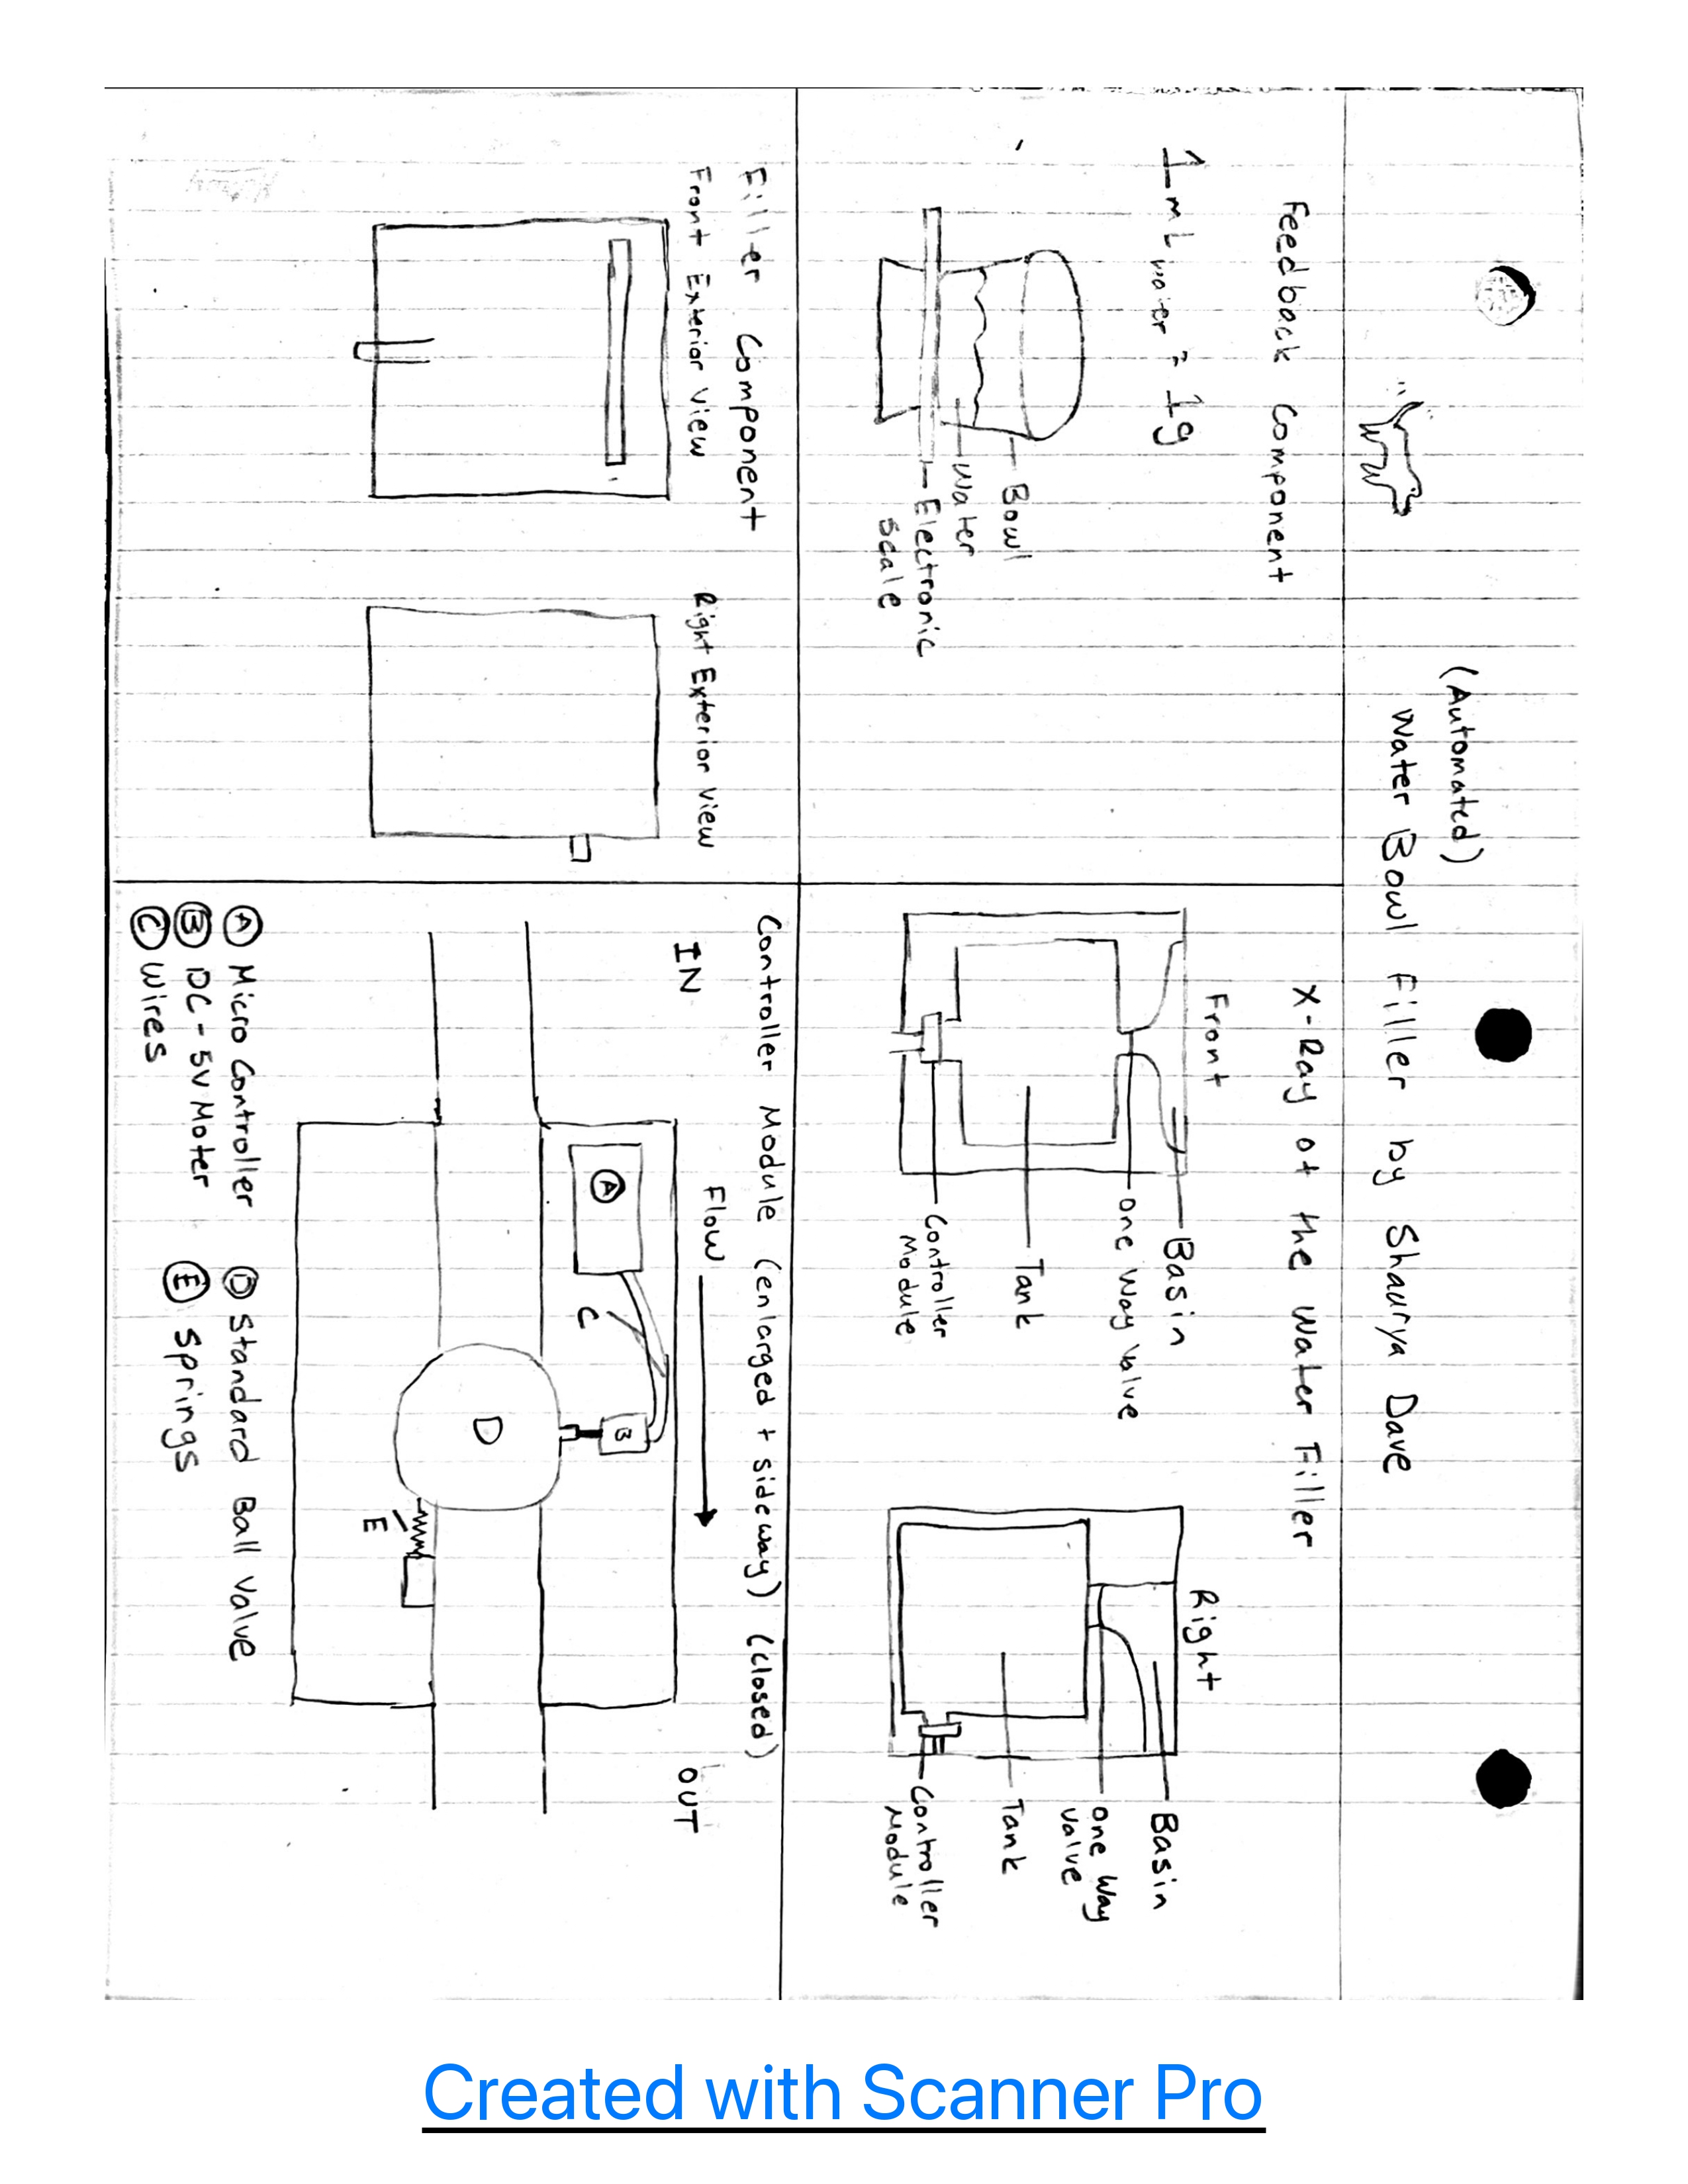 (Automated)
Water Bowl Filler by Shaurya Dave
Feedback Component
1mL water = 1g
Bowl
Water
Electronic
Scale
X-Ray of the Water Filler
Front
Basin
One Way Valve
Tank
Controller
Module
Right
Basin
One Way
Valve
Tank
Controller
Module
Filler Component
Front Exterior View
Right Exterior View
Controller Module (enlarged + sideway) (closed)
Flow
IN
OUT
A
B
C
D
E
A Micro Controller
B DC - 5V Moter
C Wires
D Standard Ball Valve
E Springs
Created with Scanner Pro